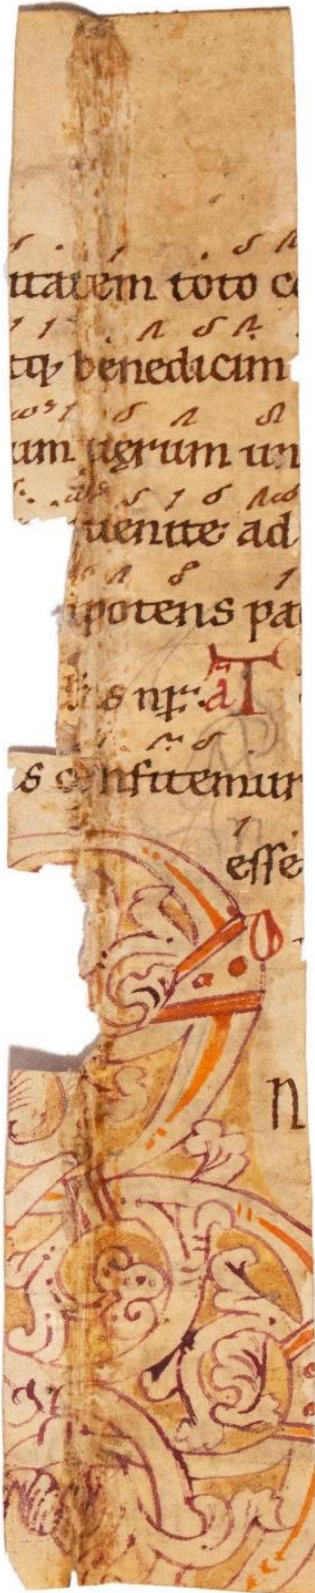 itatem toto co
tq; benedicim
um uerum un
uenite ad
ipotens pa
s nr̄. a T
s confitemur
esse
N